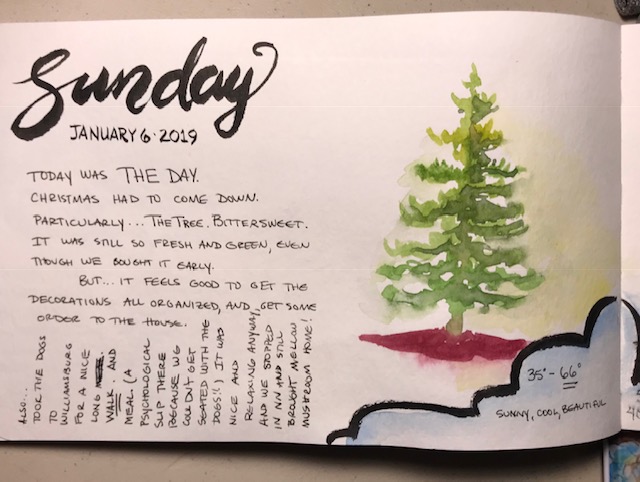 Sunday
JANUARY 6 · 2019
TODAY WAS THE DAY.
CHRISTMAS HAD TO COME DOWN.
PARTICULARLY... THE TREE. BITTERSWEET.
IT WAS STILL SO FRESH AND GREEN, EVEN
THOUGH WE BOUGHT IT EARLY.
BUT... IT FEELS GOOD TO GET THE
DECORATIONS ALL ORGANIZED, AND GET SOME
ORDER TO THE HOUSE.
ALSO...
TOOK THE DOGS
TO
WILLIAMSBURG
FOR A NICE
LONG
WALK. AND
MEAL. (A
PSYCHOLOGICAL
SLIP THERE
BECAUSE WE
COULDN'T GET
SEATED WITH THE
DOGS!!) IT WAS
NICE AND
RELAXING ANYWAY,
AND WE STOPPED
IN NN AND STILL
BROUGHT MELLOW
MUSHROOM HOME!
35° - 66°
SUNNY, COOL, BEAUTIFUL